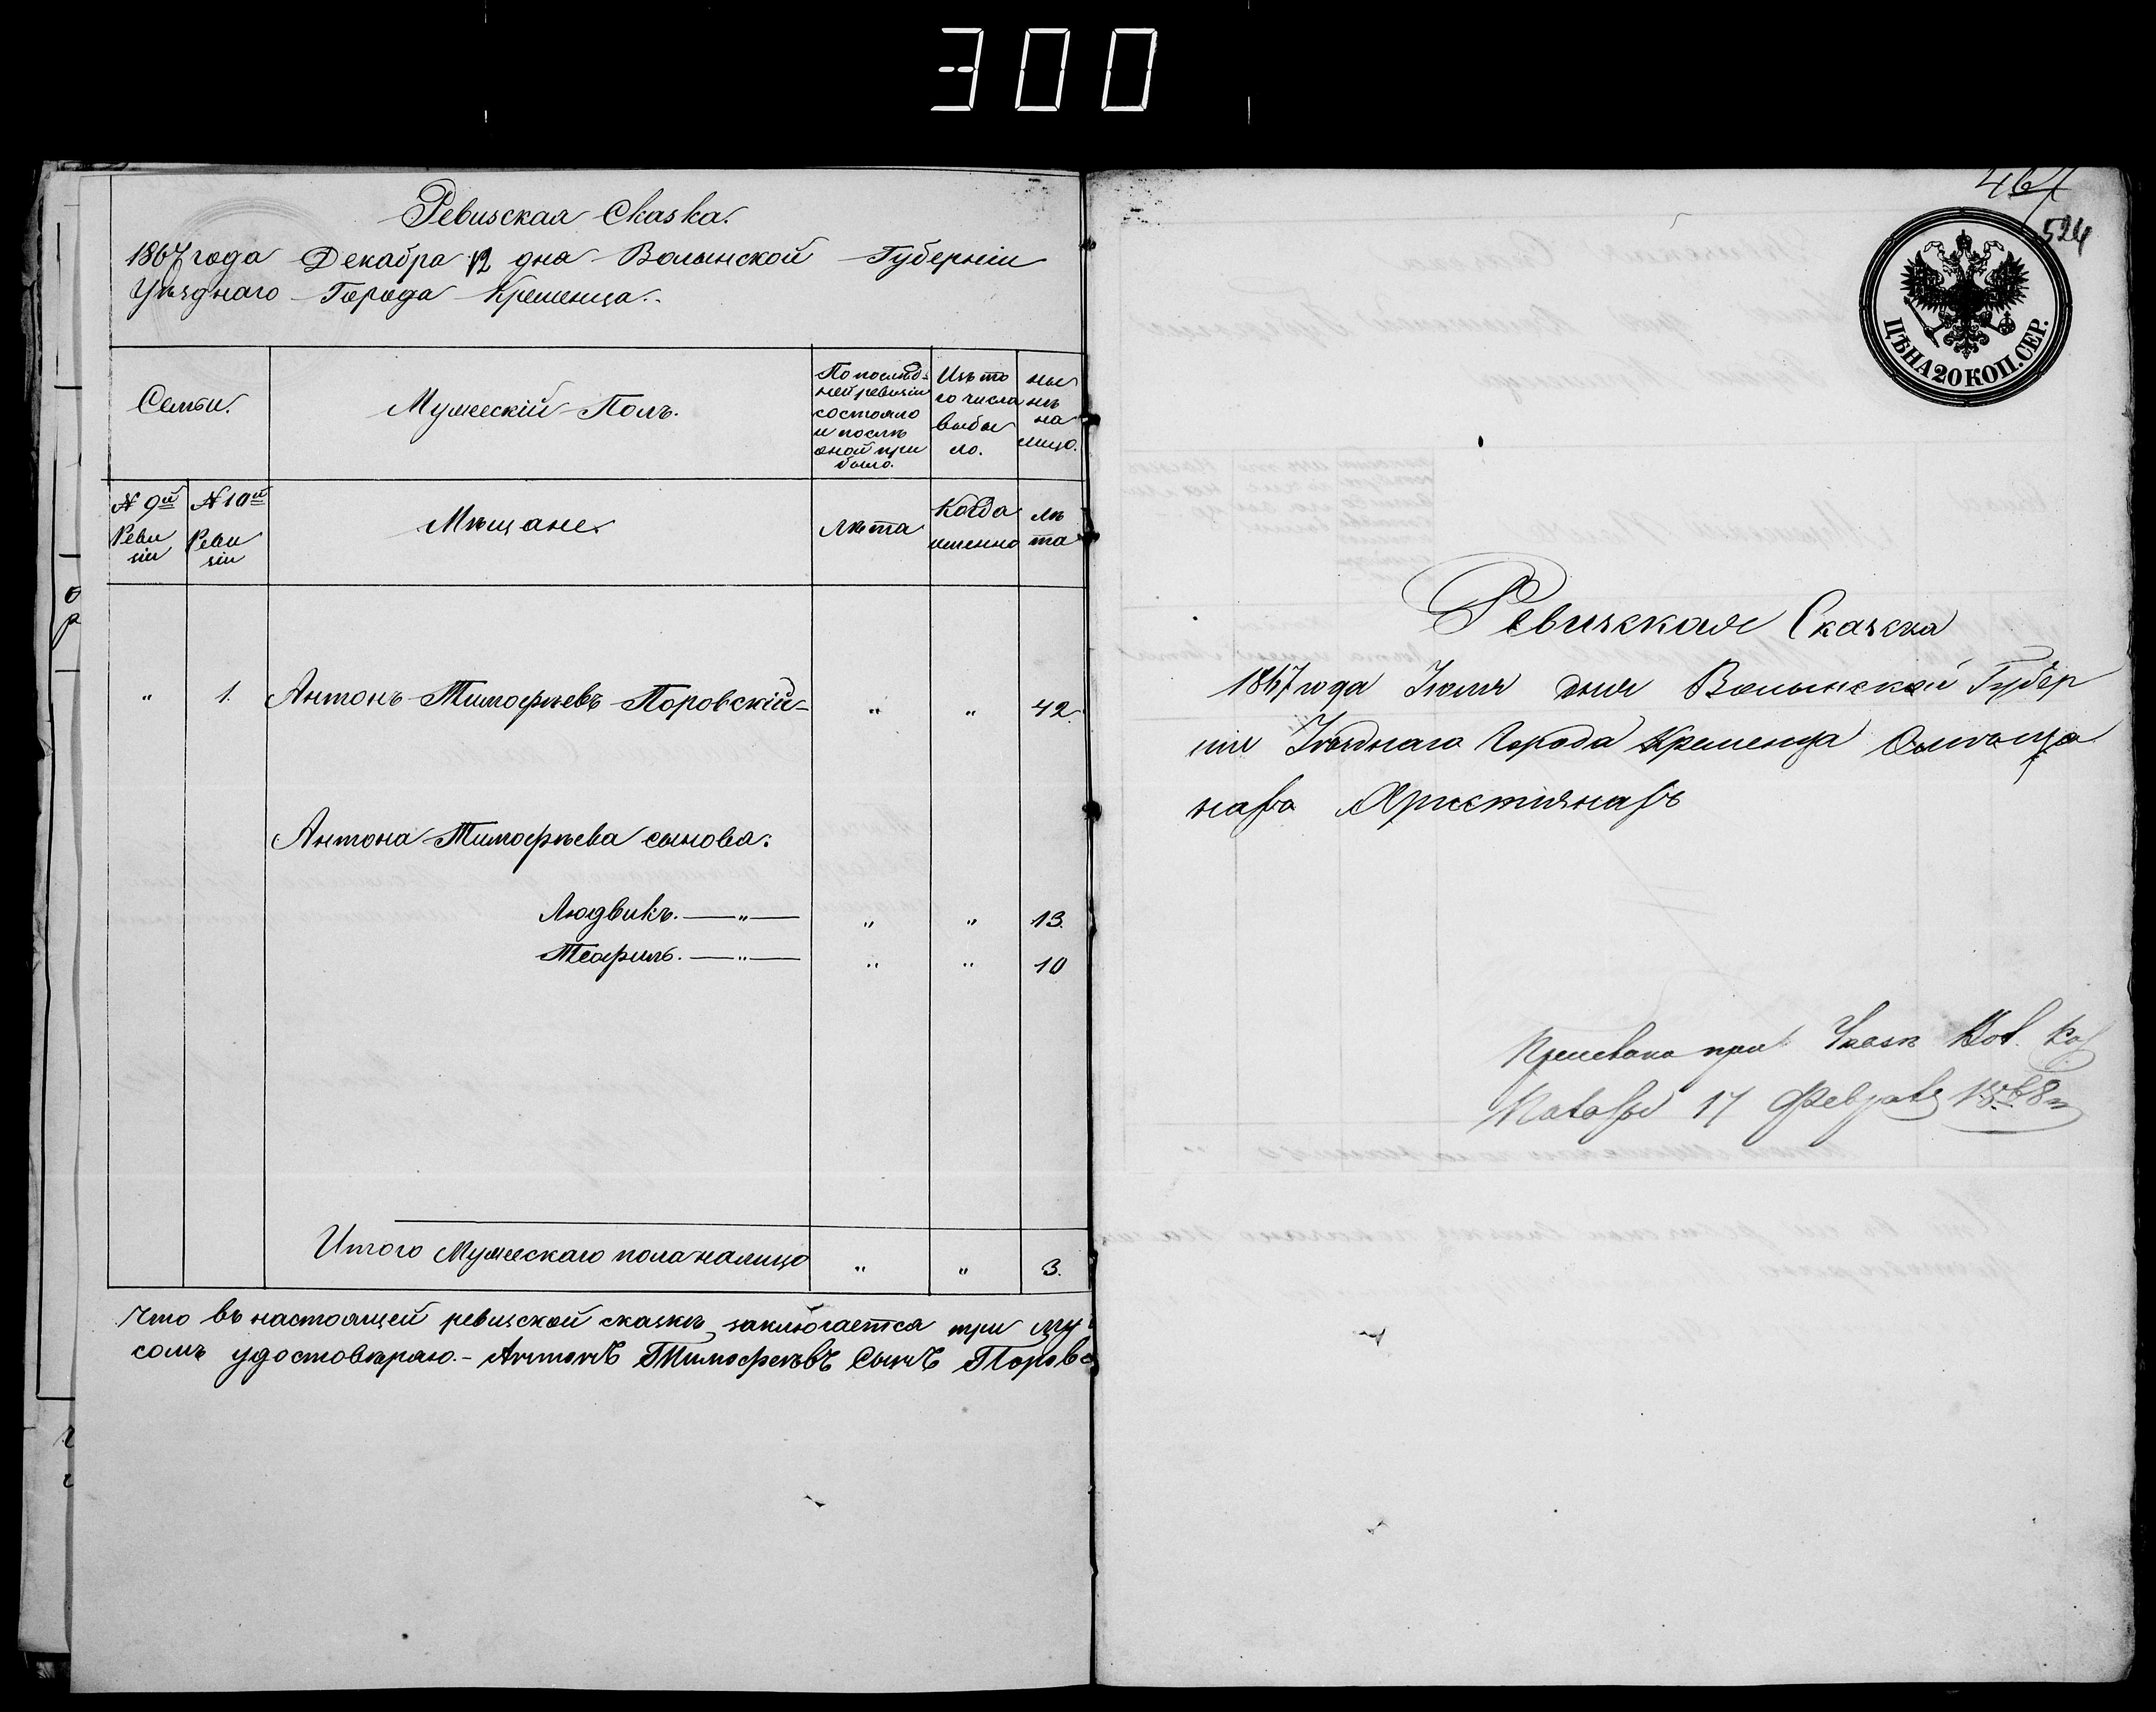 300
Ревизская Сказка.
1867 года Декабря 12 дня Волынской Губерніи
Уѣзднаго Города Кременца.
Семьи.
Мужескій Полъ.
По послѣд-
ней ревизіи
состояло
и послѣ
оной при
было.
Изъ то
го числа
выбы
ло.
Ны
нѣ
на
лицо.
№ 9й
Реви
зіи
№ 10й
Реви
зіи
Мѣщане.
Лѣта
Когда
именно
Лѣ
та
„ 1. Антонъ Тимофѣевъ Поровскій- „ „ 42.
Антона Тимофѣева сынова:
Людвикъ. —„— „ „ 13.
Теофиль. —„— „ „ 10
Итого Мужескаго пола налицо „ „ 3.
Что въ настоящей ревизской сказкѣ заключается три му
удостовѣряю.- Антонъ Тимофеевъ Сынъ Поровс
467
524
ЦѢНА 20 КОП. СЕР.
Ревизская Сказка
1867 года Іюля дня Волынской Губер
ніи Уѣзднаго Города Кременца
17 Февраля 1868